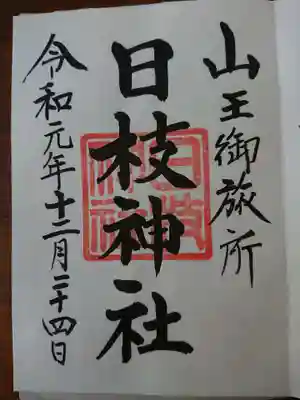 山王御旅所
日枝神社
令和元年十二月二十四日
日枝神社